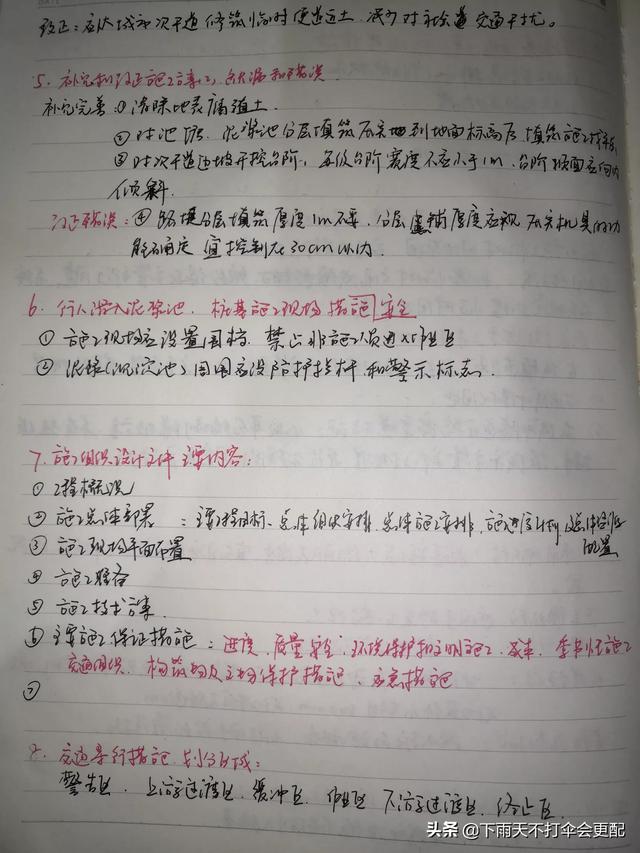 改正：应从城市次干道修筑临时便道运土，减少对主干道交通干扰。
5. 补充和改正施工方案(二)、缺漏和错误
补充完善：① 清除地表腐殖土
② 对池塘、泥浆池分层填筑压实地到地面标高后，填筑施工
③ 对次干道边坡开挖台阶，每级台阶宽度不应小于1m，台阶顶面应向内
倾斜.
改正错误：④ 路填分层填筑厚度1m不妥，分层虚铺厚度应视压实机具的功
能确定 宜控制在30cm以内.
6. 行人滑入泥浆池. 桩基施工现场措施 安全
① 施工现场应设置围挡，禁止非施工人员进入作业区
② 泥浆(沉淀池)周围应设防护栏杆和警示标志.
7. 施工组织设计文件主要内容：
① 工程概况
② 施工总体部署：主要工程目标、总体组织安排、总体施工安排、施工进度计划及总体资源
配置
③ 施工现场平面布置
④ 施工准备
⑤ 施工技术方案.
⑥ 主要施工保证措施：进度、质量安全、环境保护和文明施工、成本、季节性施工
交通组织、构筑物及文物保护措施、应急措施
⑦
8. 交通导行措施，划分区域：
警告区、上游过渡区、缓冲区、作业区、下游过渡区、终止区.
头条 @下雨天不打伞会更配